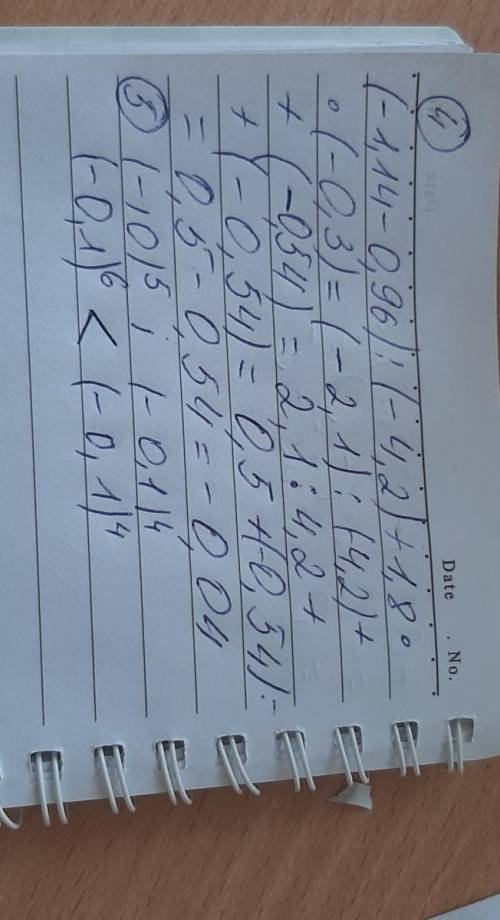 Date . No.
④
(-1,14-0,96):(-4,2)+1,8·
·(-0,3)=(-2,1):(-4,2)+
+(-0,54)=2,1:4,2+
+(-0,54)=0,5+(-0,54)=
=0,5-0,54=-0,04
⑤ (-10)⁵; (-0,1)⁴
(-0,1)⁶ < (-0,1)⁴